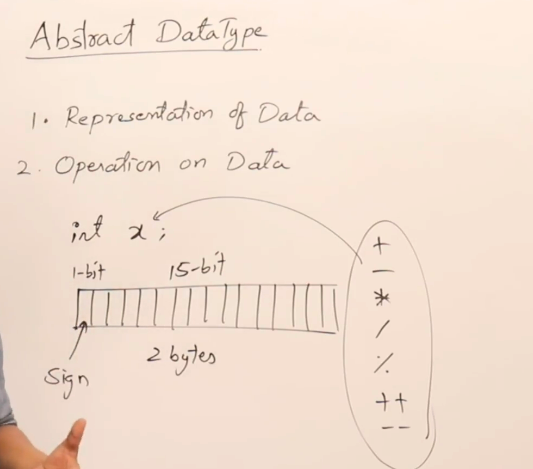 Abstract DataType
1. Representation of Data
2. Operation on Data
int x;
1-bit 15-bit
2 bytes
Sign
+
-
*
/
%
++
--